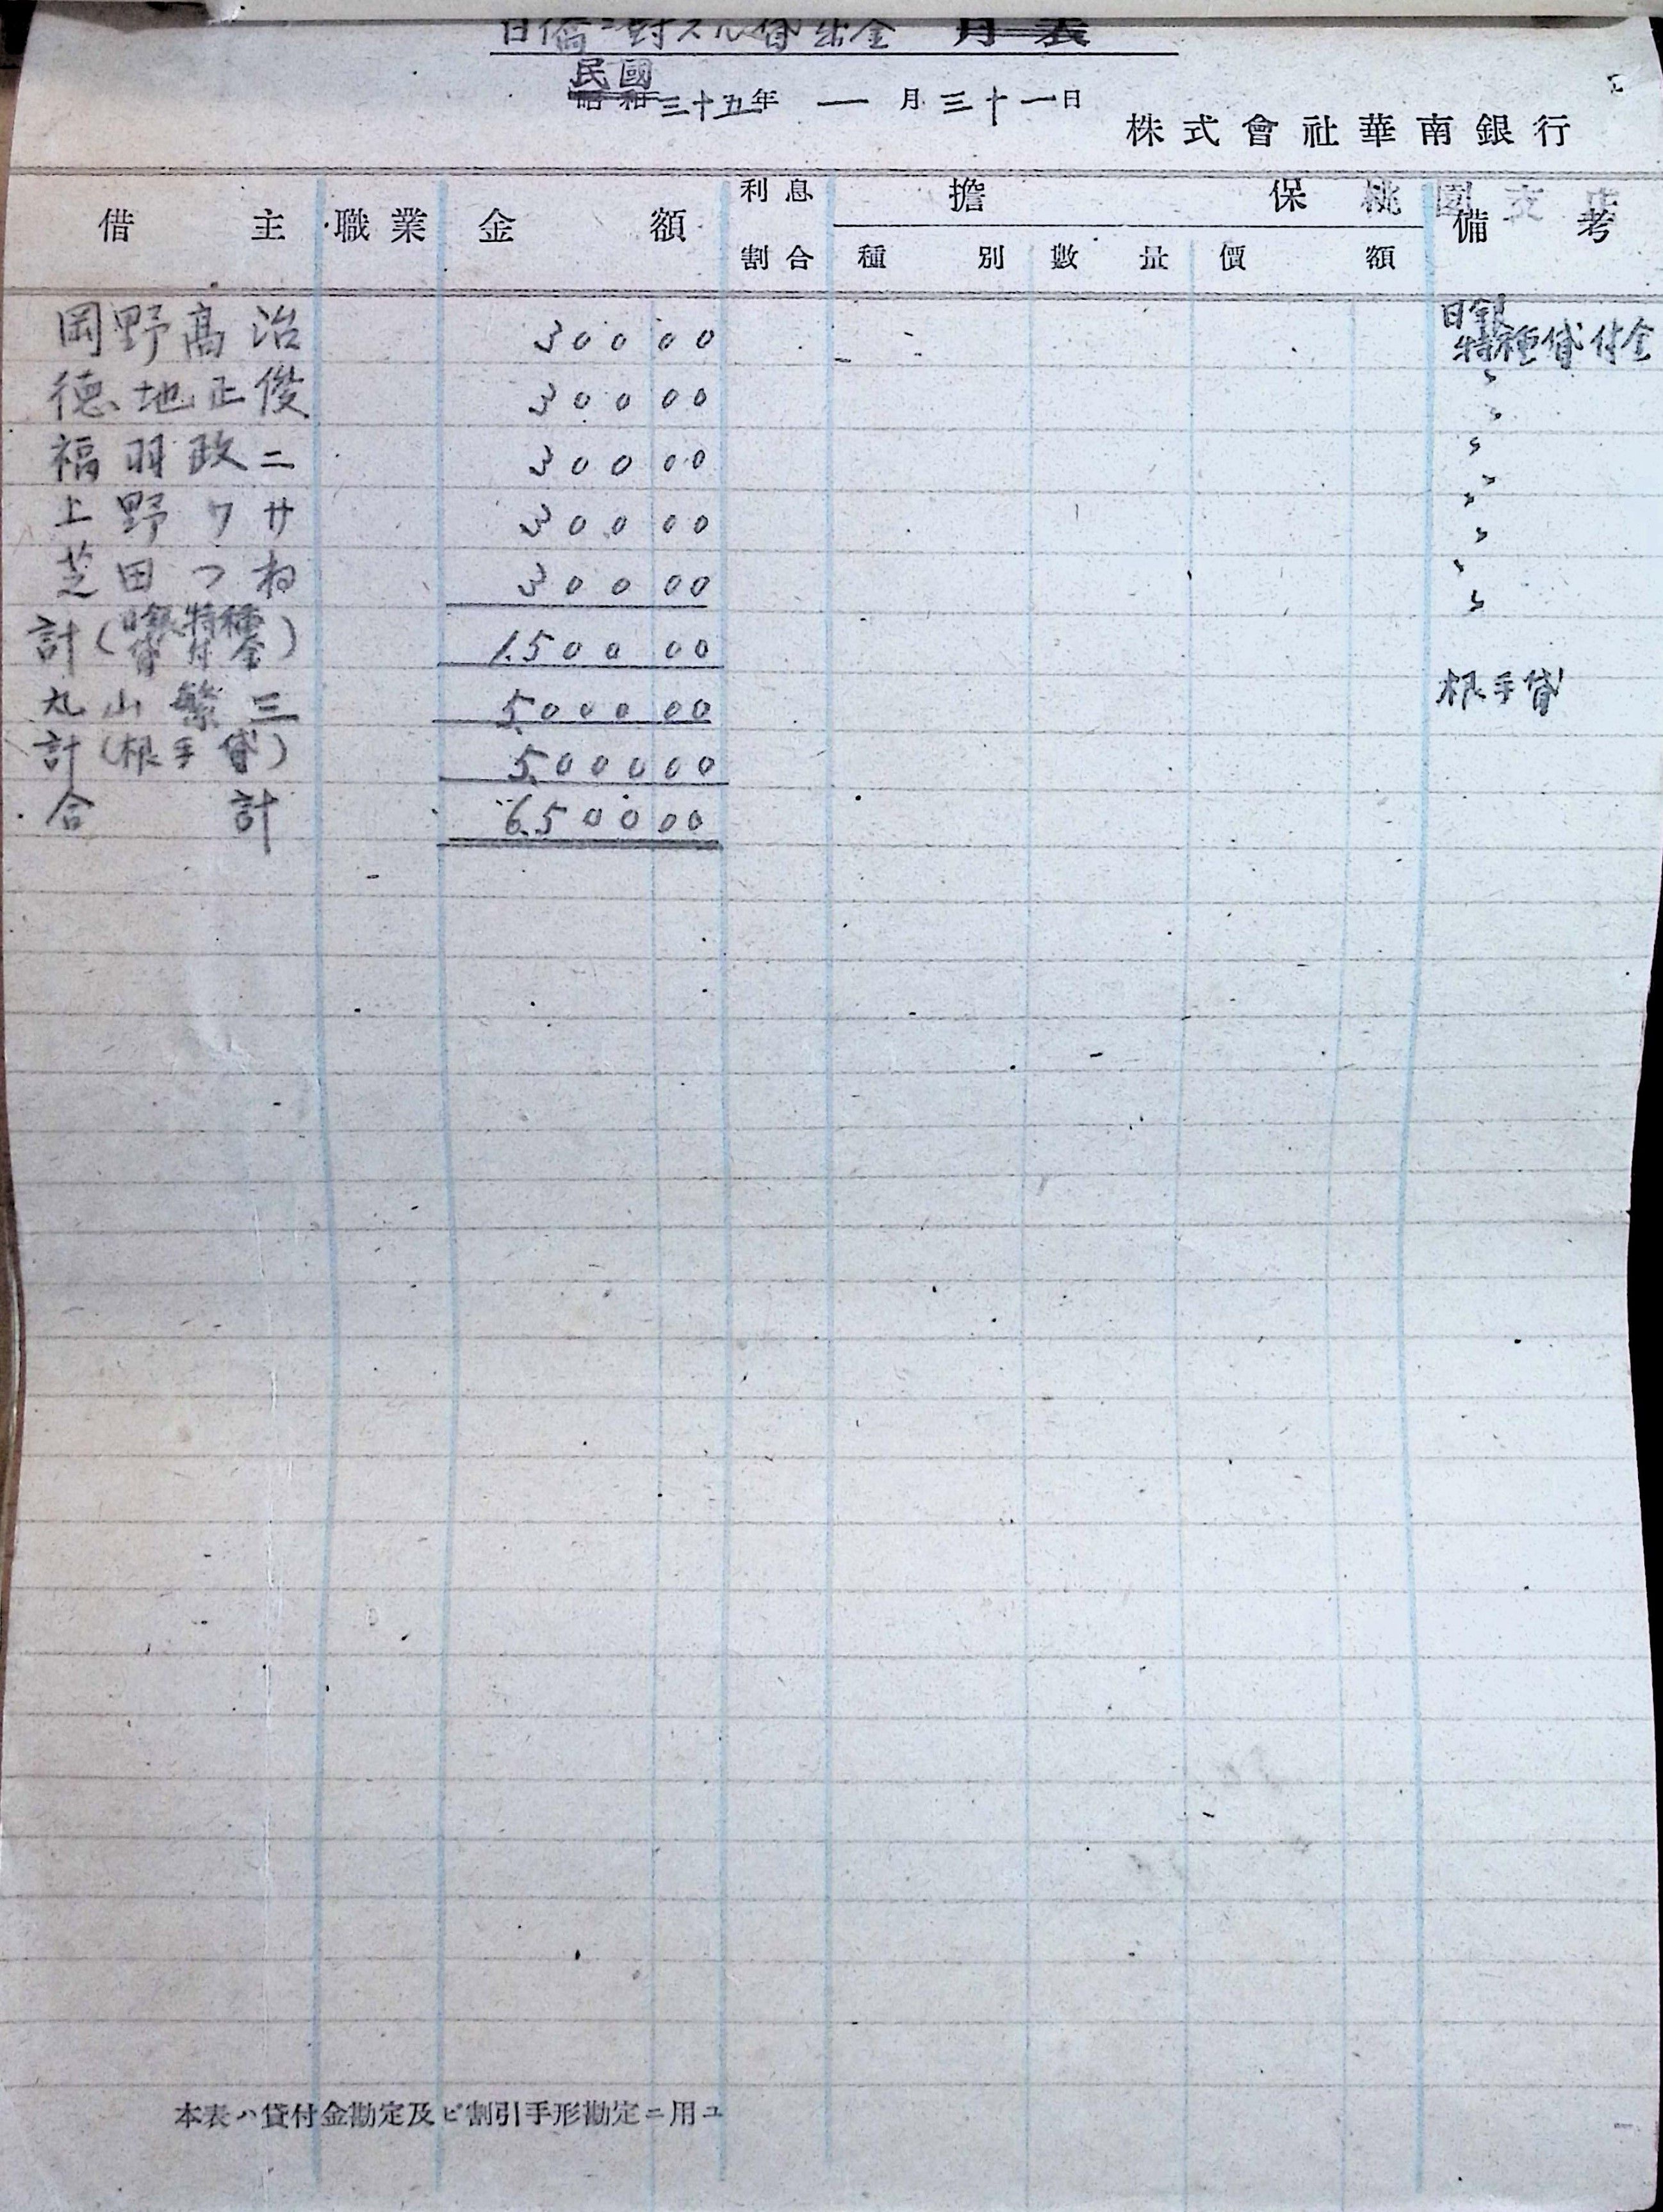 日僑ニ對スル貸出金 月表
民國
昭和三十五年 一月三十一日
株式會社華南銀行
桃園支店
借主 職業 金額 利息割合 擔保 備考
種別 數量 價額
岡野髙治 300 00 日銀特種貸付金
徳地正俊 300 00 〃
福羽政二 300 00 〃
上野クサ 300 00 〃
芝田つね 300 00 〃
計(日銀特種貸付金) 1.500 00
丸山繁三 5.000 00 根手貸
計(根手貸) 5.000 00
合計 6.500 00
本表ハ貸付金勘定及ビ割引手形勘定ニ用ユ